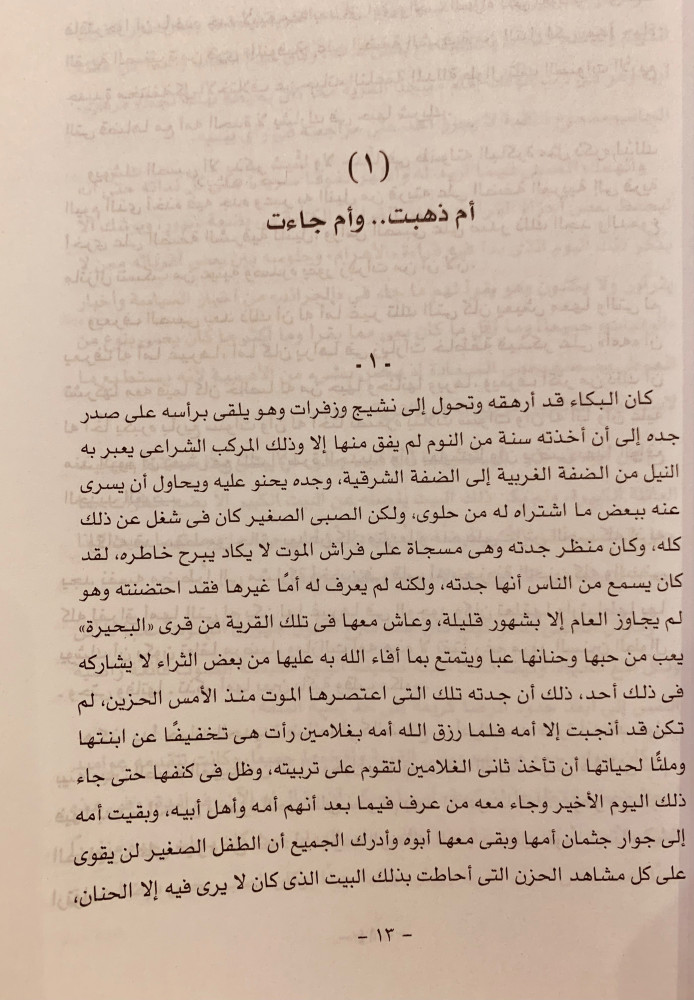 (١)
أم ذهبت.. وأم جاءت
- ١ -
كان البكاء قد أرهقه وتحول إلى نشيج وزفرات وهو يلقى برأسه على صدر
جده إلى أن أخذته سنة من النوم لم يفق منها إلا وذلك المركب الشراعى يعبر به
النيل من الضفة الغربية إلى الضفة الشرقية، وجده يحنو عليه ويحاول أن يسرى
عنه ببعض ما اشتراه له من حلوى، ولكن الصبى الصغير كان فى شغل عن ذلك
كله، وكان منظر جدته وهى مسجاة على فراش الموت لا يكاد يبرح خاطره، لقد
كان يسمع من الناس أنها جدته، ولكنه لم يعرف له أمًا غيرها فقد احتضنته وهو
لم يجاوز العام إلا بشهور قليلة، وعاش معها فى تلك القرية من قرى «البحيرة»
يعب من حبها وحنانها عبا ويتمتع بما أفاء الله به عليها من بعض الثراء لا يشاركه
فى ذلك أحد، ذلك أن جدته تلك التى اعتصرها الموت منذ الأمس الحزين، لم
تكن قد أنجبت إلا أمه فلما رزق الله أمه بغلامين رأت هى تخفيفًا عن ابنتها
وملئًا لحياتها أن تأخذ ثانى الغلامين لتقوم على تربيته، وظل فى كنفها حتى جاء
ذلك اليوم الأخير وجاء معه من عرف فيما بعد أنهم أمه وأهل أبيه، وبقيت أمه
إلى جوار جثمان أمها وبقى معها أبوه وأدرك الجميع أن الطفل الصغير لن يقوى
على كل مشاهد الحزن التى أحاطت بذلك البيت الذى كان لا يرى فيه إلا الحنان،
- ١٣ -